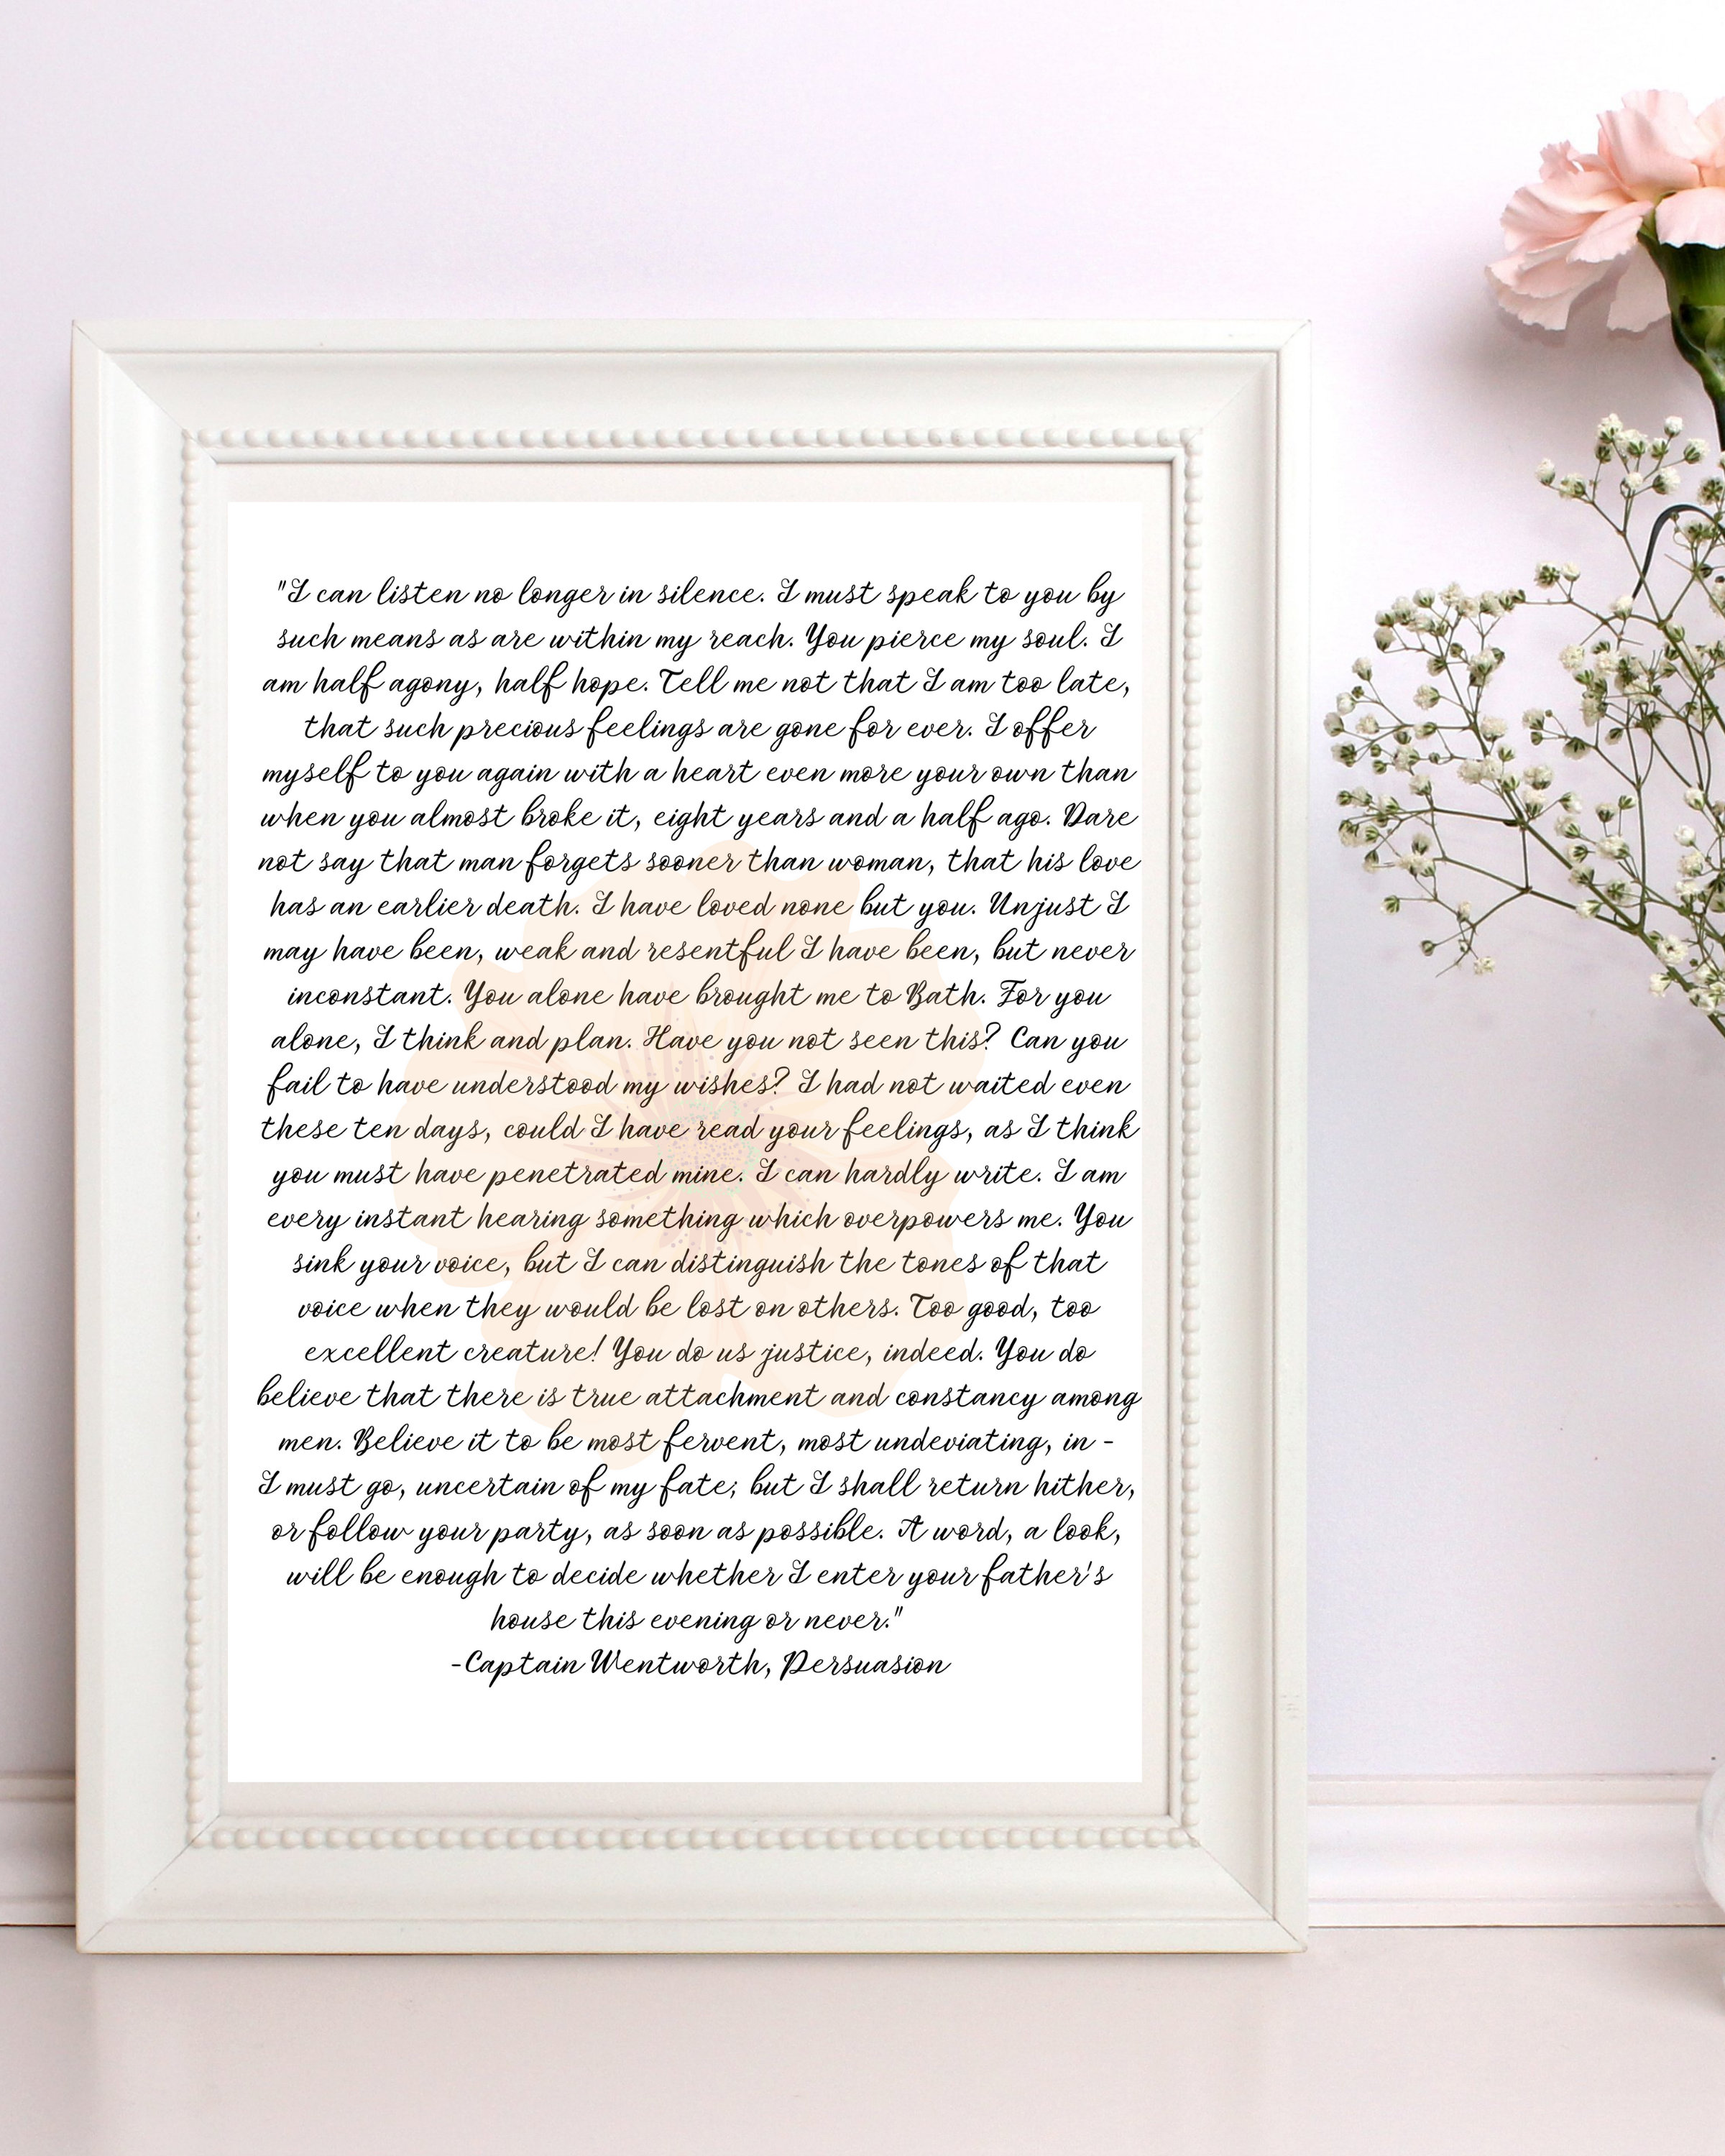 "I can listen no longer in silence. I must speak to you by
such means as are within my reach. You pierce my soul. I
am half agony, half hope. Tell me not that I am too late,
that such precious feelings are gone for ever. I offer
myself to you again with a heart even more your own than
when you almost broke it, eight years and a half ago. Dare
not say that man forgets sooner than woman, that his love
has an earlier death. I have loved none but you. Unjust I
may have been, weak and resentful I have been, but never
inconstant. You alone have brought me to Bath. For you
alone, I think and plan. Have you not seen this? Can you
fail to have understood my wishes? I had not waited even
these ten days, could I have read your feelings, as I think
you must have penetrated mine. I can hardly write. I am
every instant hearing something which overpowers me. You
sink your voice, but I can distinguish the tones of that
voice when they would be lost on others. Too good, too
excellent creature! You do us justice, indeed. You do
believe that there is true attachment and constancy among
men. Believe it to be most fervent, most undeviating, in -
I must go, uncertain of my fate; but I shall return hither,
or follow your party, as soon as possible. A word, a look,
will be enough to decide whether I enter your father's
house this evening or never."
-Captain Wentworth, Persuasion